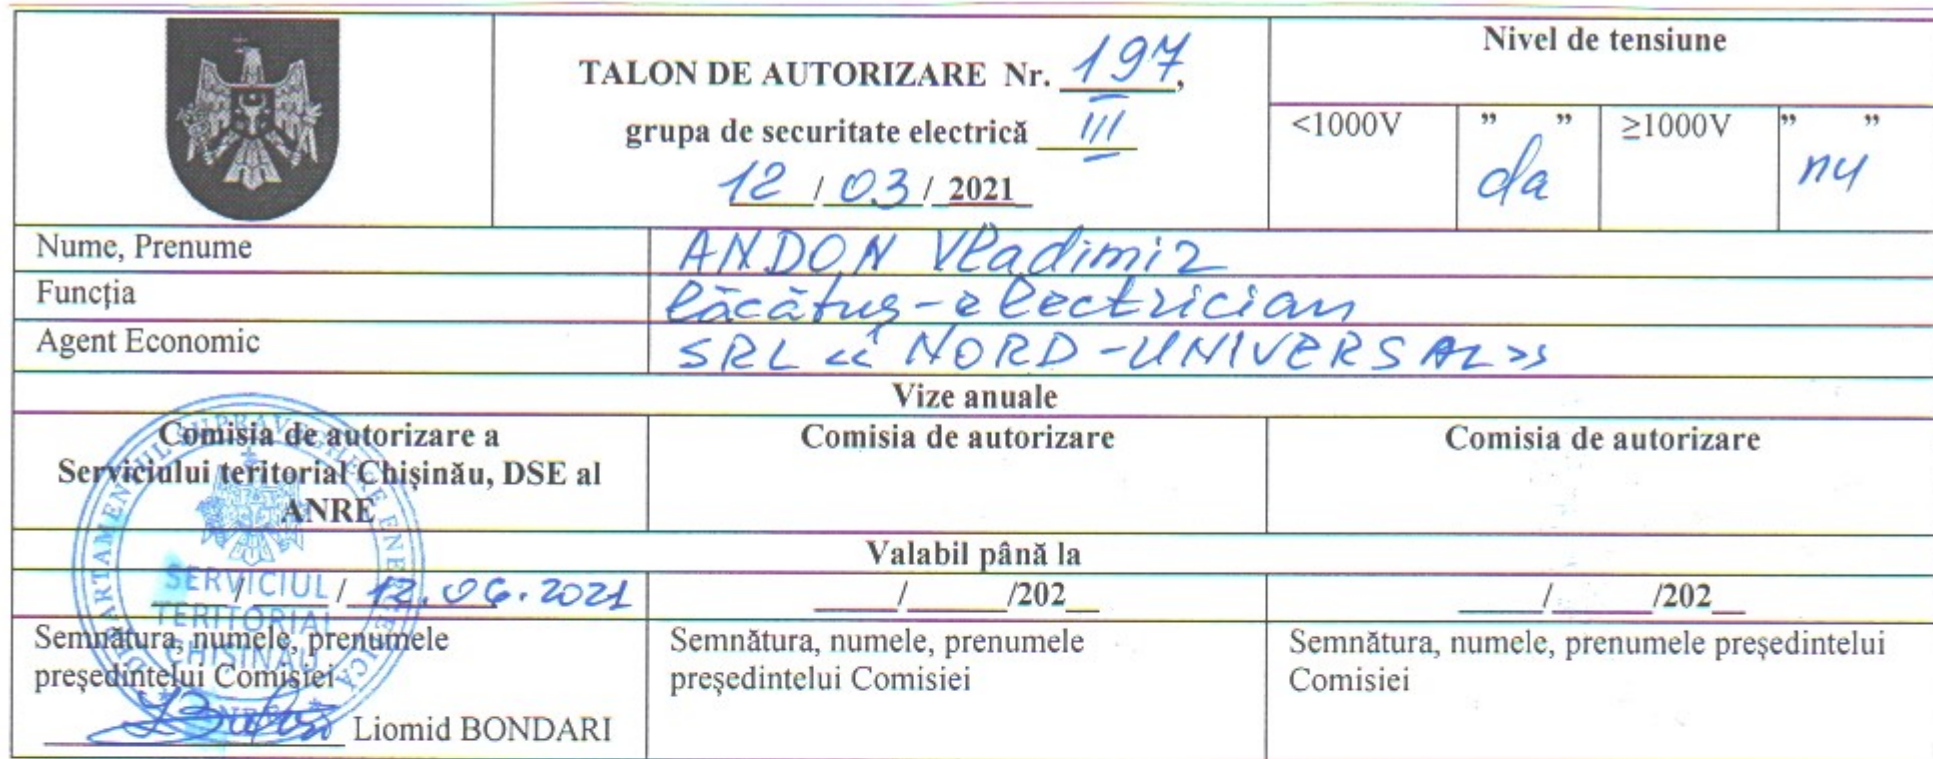 TALON DE AUTORIZARE Nr. 197,
grupa de securitate electrică III
12 / 03 / 2021
Nivel de tensiune
<1000V " da " ≥1000V " nu "
Nume, Prenume ANDON Vladimir
Funcția lăcătuș-electrician
Agent Economic SRL «NORD-UNIVERSAL»
Vize anuale
Comisia de autorizare a
Serviciului teritorial Chișinău, DSE al
ANRE
Comisia de autorizare
Comisia de autorizare
Valabil până la
/ / 12.06.2021
/ /202
/ /202
Semnătura, numele, prenumele
președintelui Comisiei
Liomid BONDARI
Semnătura, numele, prenumele
președintelui Comisiei
Semnătura, numele, prenumele președintelui
Comisiei
SERVICIUL
TERITORIAL
CHIȘINĂU